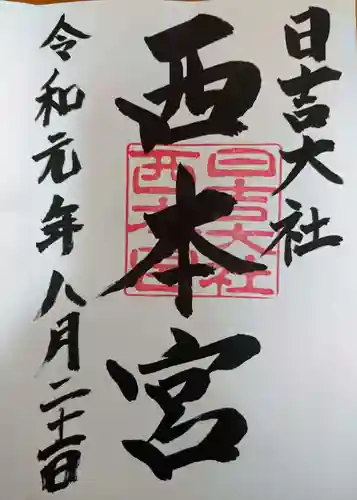 日吉大社
西本宮
令和元年八月二十一日
日吉大社
西本宮